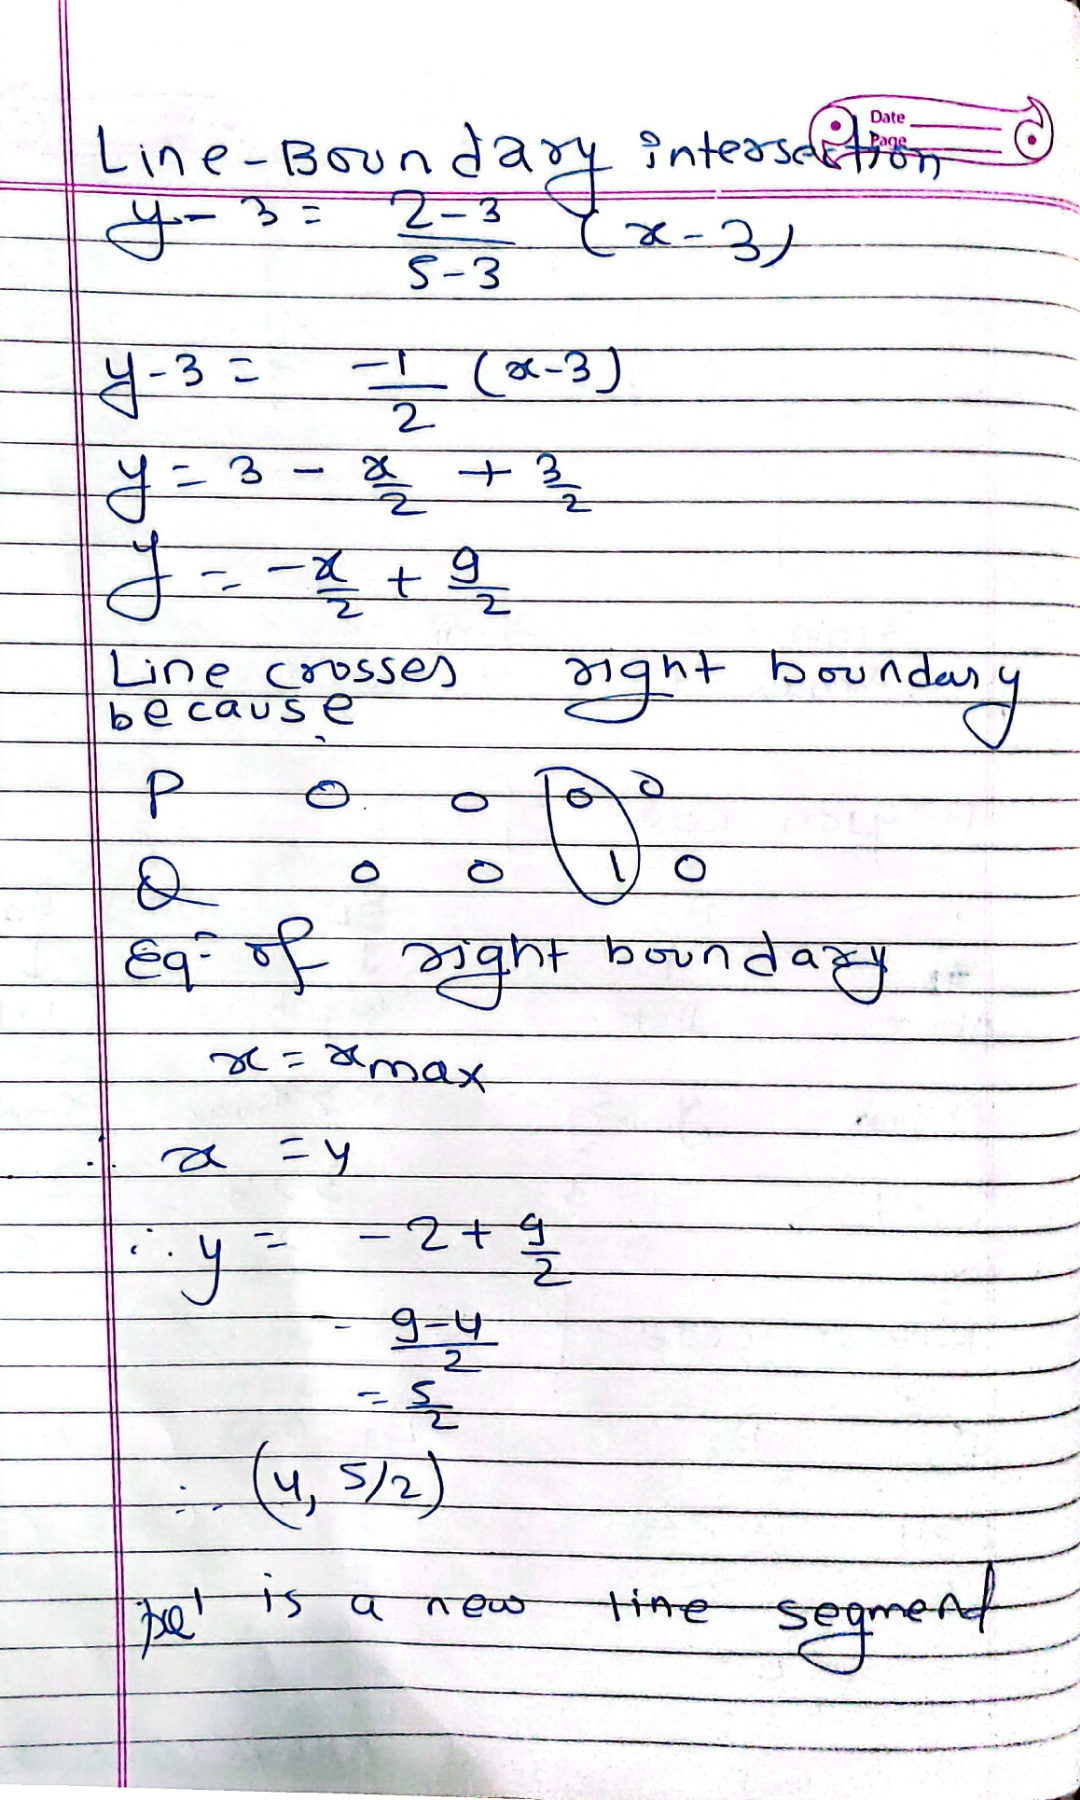 Date
Page
Line-Boundary intersection
y - 3 = 2-3/5-3 (x-3)
y-3 = -1/2 (x-3)
y = 3 - x/2 + 3/2
y = -x/2 + 9/2
Line crosses right boundary
because
P 0 0 0 0
Q 0 0 1 0
Eqn of right boundary
x = xmax
∴ x = 4
∴ y = -2 + 9/2
= 9-4/2
= 5/2
∴ (4, 5/2)
is a new line segment